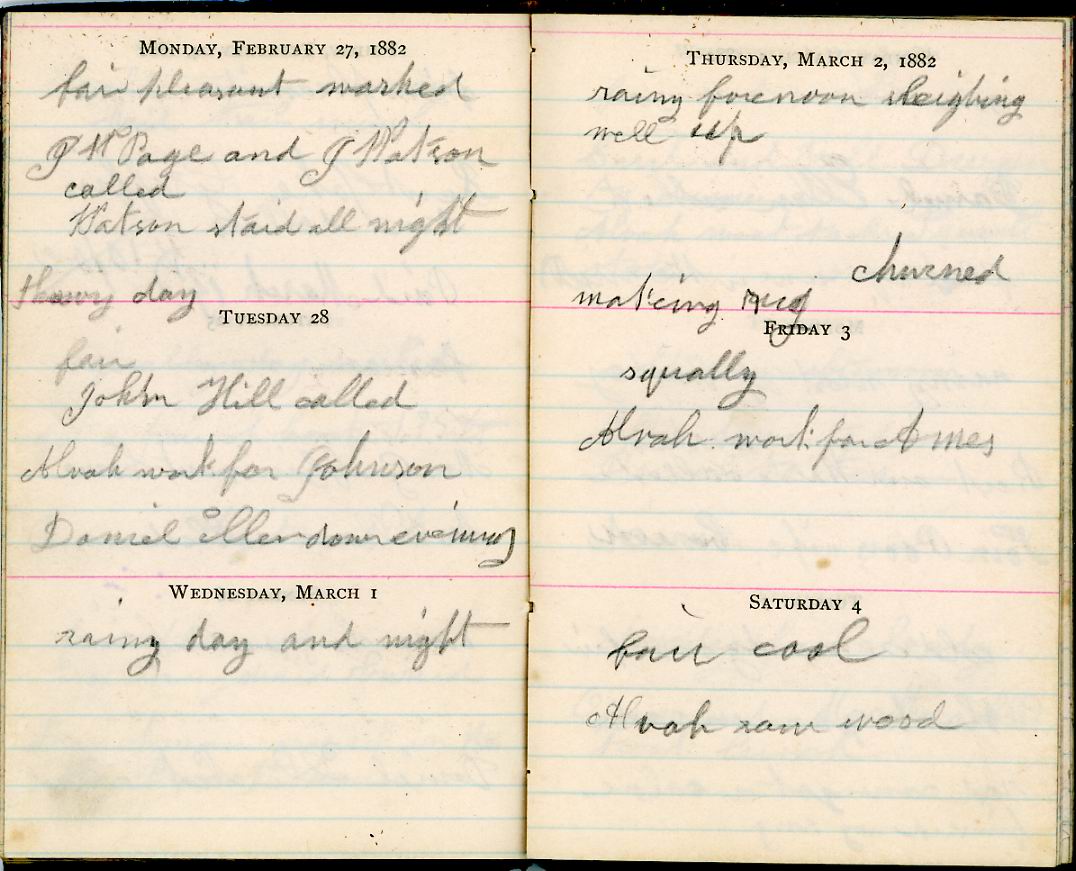 MONDAY, FEBRUARY 27, 1882
fair pleasant washed
P H Page and J Watson
called
Watson staid all night
thawy day
TUESDAY 28
fair
John Hill called
Alvah work for Johnson
Daniel Ellen down evening
WEDNESDAY, MARCH 1
rainy day and night
THURSDAY, MARCH 2, 1882
rainy forenoon sleighing
well up
churned
making rug
FRIDAY 3
squally
Alvah work for Ames
SATURDAY 4
fair cool
Alvah saw wood